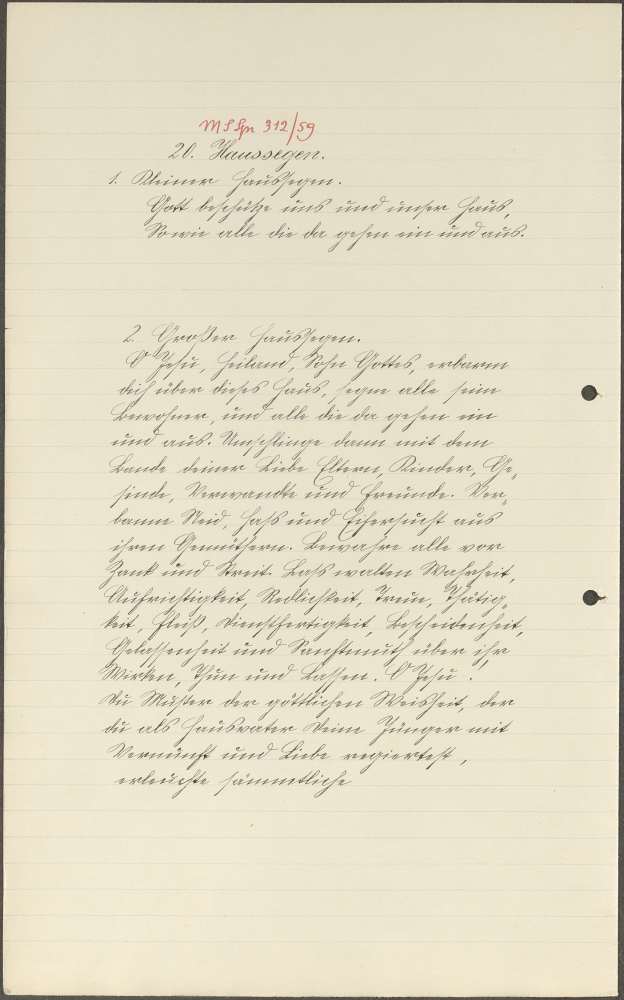 MS Spr 312/59
20. Haussegen.
1. Kleiner Haussegen.
Gott beschütze uns und unser Haus,
Sowie alle die da gehen ein und aus.
2. Großer Haussegen.
O Jesu, Heiland, Sohn Gottes, erbarm
dich über dieses Haus, segne alle seine
Bewohner, und alle die da gehen ein
und aus. Umschlinge dann mit dem
Bande deiner Liebe Eltern, Kinder, Ge„
sinde, Verwandte und Freunde. Ver„
banne Neid, Hass und Eifersucht aus
ihren Gemüthern. Bewahre alle vor
Zank und Streit. Lass walten Wahrheit,
Aufrichtigkeit, Redlichkeit, Treue, Thätig„
keit, Fleiß, Dienstfertigkeit, Bescheidenheit,
Gelassenheit und Sanftmuth über ihr
Wirken, Thun und Lassen. O Jesu!
Du Muster der göttlichen Weisheit, der
du als Hausvater Deine Jünger mit
Vernunft und Liebe regiertest,
erleuchte sämmtliche